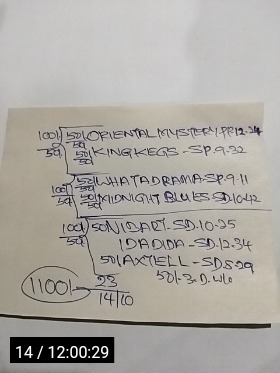 100/ 50/ ORIENTAL MYSTERY-PR 12-34
50/ KING KEGS - SP. 9-32
50/ WHATADRAMA-SP.9-11
100/ 50/ MIDNIGHT BLUES-SD.10-42
100/ 50 NIDART-SD.10-25
IDADIDA-SD.12-34
50/ AXTELL-SD.8-29
50/-3.D.W/o
1100/
14/10
14 / 12:00:29